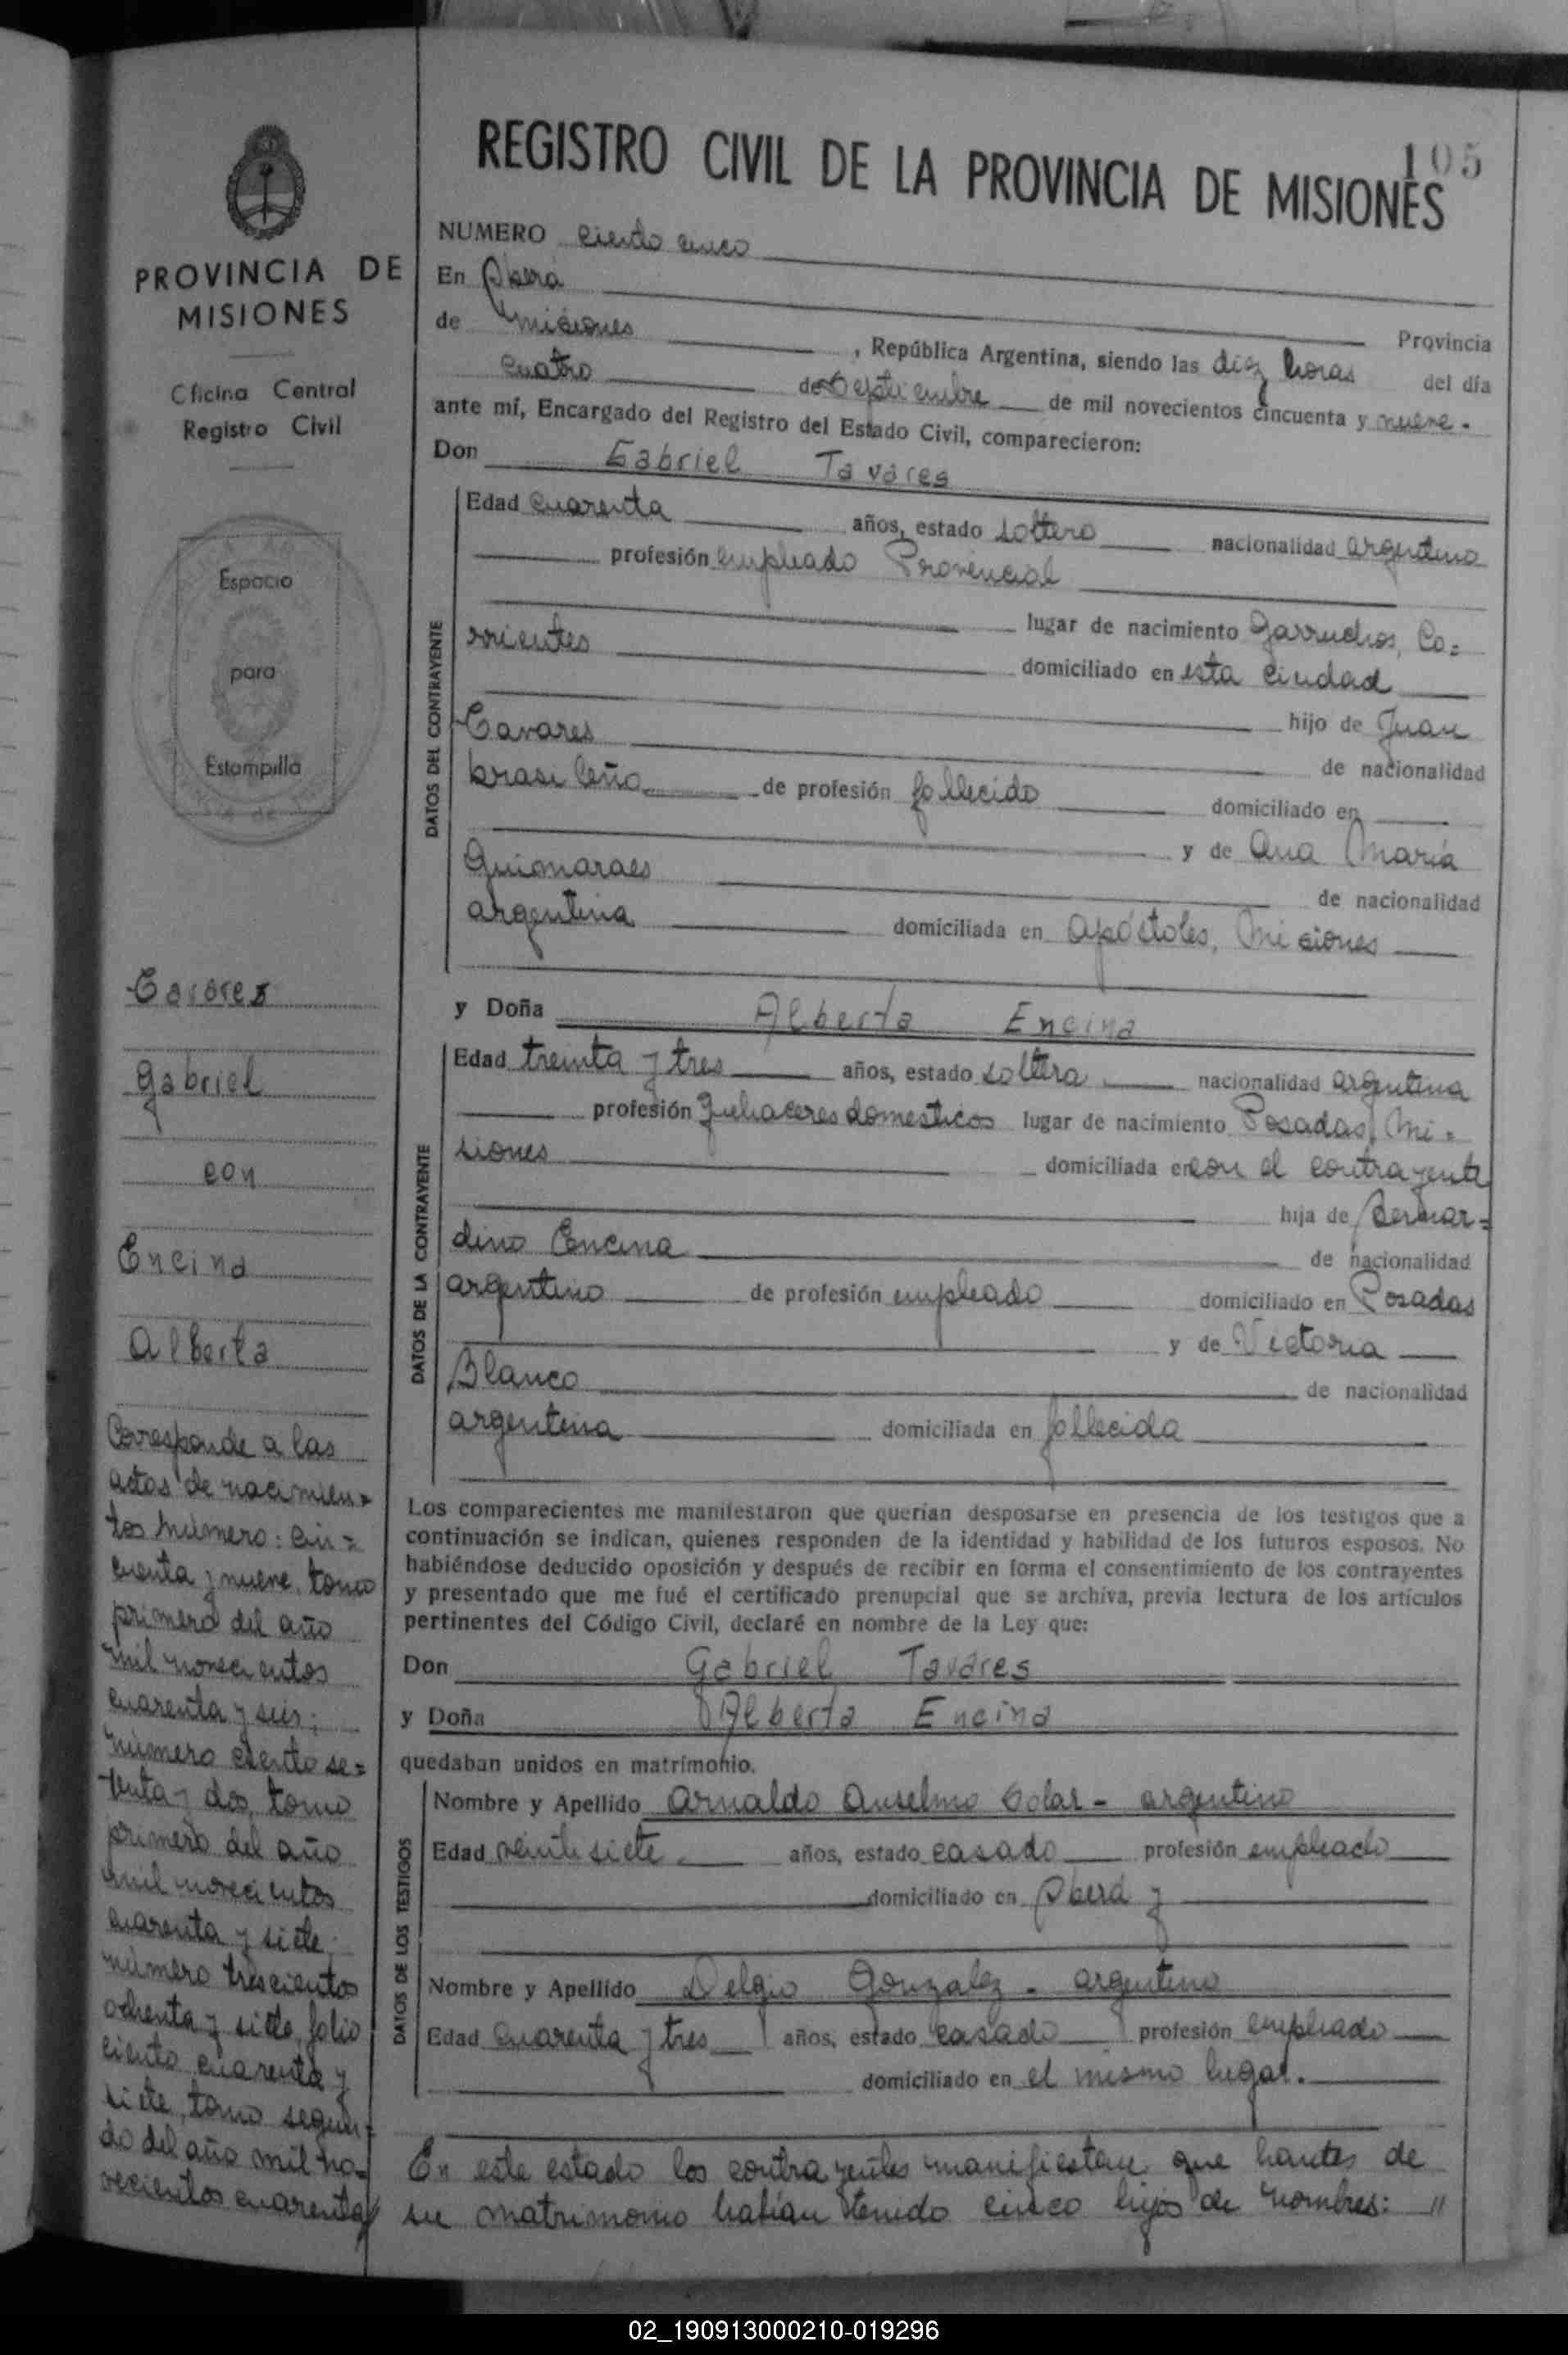 REGISTRO CIVIL DE LA PROVINCIA DE MISIONES
105
NUMERO ciento cinco
En Oberá
Provincia
de Misiones , República Argentina, siendo las diez horas del día
cuatro de Septiembre de mil novecientos cincuenta y nueve.
ante mí, Encargado del Registro del Estado Civil, comparecieron:
Don Gabriel Tavares
DATOS DEL CONTRAYENTE
Edad cuarenta años, estado soltero nacionalidad argentino
profesión empleado Provincial
lugar de nacimiento Garruchos, Co=
rrientes domiciliado en esta ciudad
hijo de Juan
Tavares de nacionalidad
brasileño de profesión fallecido domiciliado en
y de Ana María
Guimaraes de nacionalidad
argentina domiciliada en Apóstoles, Misiones
y Doña Alberta Encina
DATOS DE LA CONTRAYENTE
Edad treinta y tres años, estado soltera nacionalidad argentina
profesión Quehaceres domesticos lugar de nacimiento Posadas, Mi=
siones domiciliada en con el contrayente
hija de Bernar=
dino Encina de nacionalidad
argentino de profesión empleado domiciliado en Posadas
y de Victoria
Blanco de nacionalidad
argentina domiciliada en fallecida
Los comparecientes me manifestaron que querían desposarse en presencia de los testigos que a
continuación se indican, quienes responden de la identidad y habilidad de los futuros esposos. No
habiéndose deducido oposición y después de recibir en forma el consentimiento de los contrayentes
y presentado que me fué el certificado prenupcial que se archiva, previa lectura de los artículos
pertinentes del Código Civil, declaré en nombre de la Ley que:
Don Gabriel Tavares
y Doña Alberta Encina
quedaban unidos en matrimonio.
DATOS DE LOS TESTIGOS
Nombre y Apellido Arnaldo Anselmo - argentino
Edad veinti siete años, estado casado profesión empleado
domiciliado en Oberá y
Nombre y Apellido Delgio Gonzalez - argentino
Edad cuarenta y tres años, estado casado profesión empleado
domiciliado en el mismo lugar.
En este estado los contrayentes manifiestan que hantes de
su matrimonio habían tenido cinco hijos de nombres: "
PROVINCIA DE
MISIONES
Oficina Central
Registro Civil
Espacio
para
Estampilla
Tavares
Gabriel
con
Encina
Alberta
Corresponde a las
actos de nacimien=
tos número: cin=
cuenta y nueve, tomo
primero del año
mil novecientos
cuarenta y seis;
número ciento se=
tenta y dos, tomo
primero del año
mil novecientos
cuarenta y siete;
número trescientos
ochenta y siete, folio
ciento cuarenta y
siete, tomo segun=
do del año mil no=
vecientos cuarenta y
02_190913000210-019296